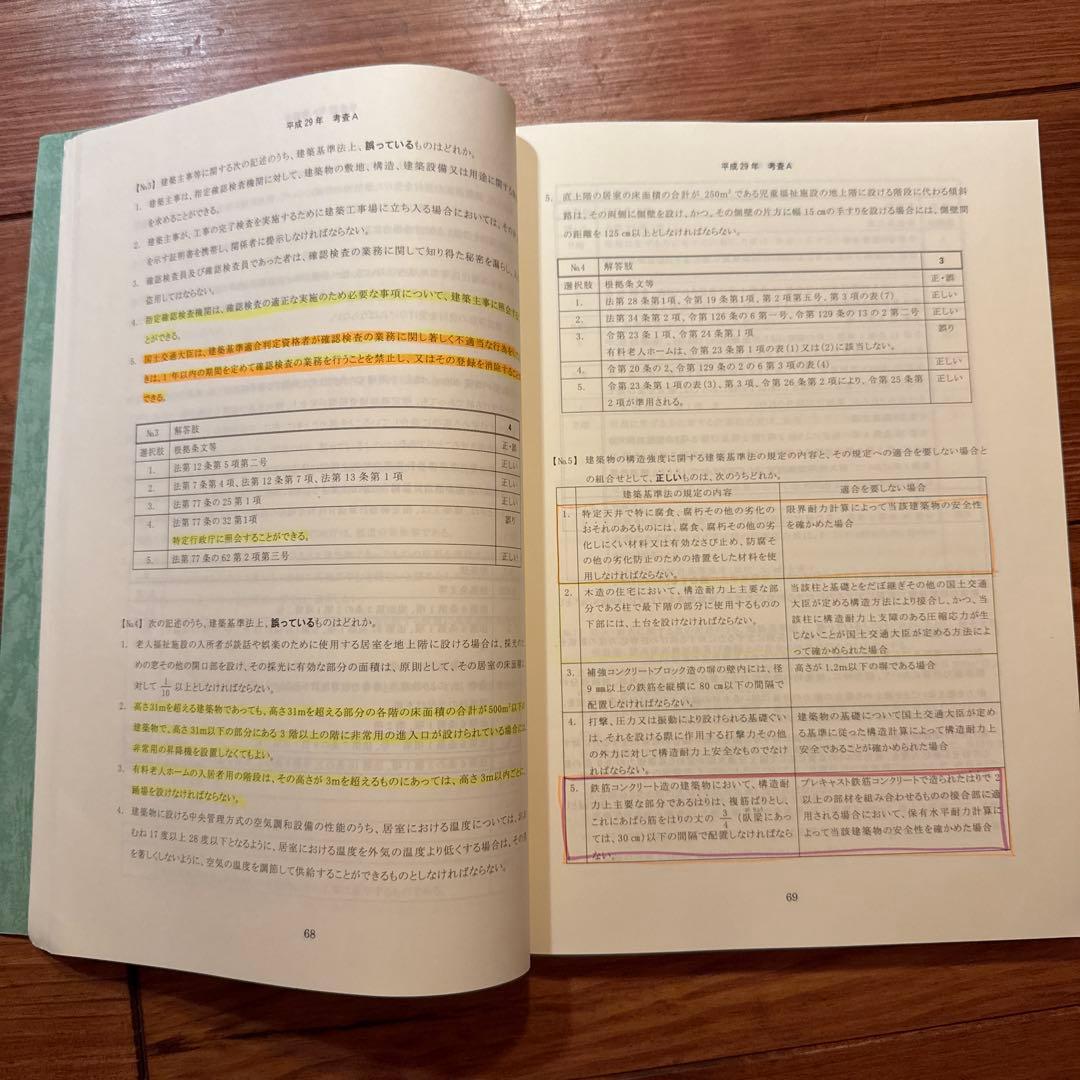 平成29年 考査A
【№3】 建築主事等に関する次の記述のうち、建築基準法上、誤っているものはどれか。
1. 建築主事は、指定確認検査機関に対して、建築物の敷地、構造、建築設備又は用途に関する
を求めることができる。
2. 建築主事が、工事の完了検査を実施するために建築工事場に立ち入る場合においては、その
を示す証明書を携帯し、関係者に提示しなければならない。
3. 確認検査員及び確認検査員であった者は、確認検査の業務に関して知り得た秘密を漏らし、
盗用してはならない。
4. 指定確認検査機関は、確認検査の適正な実施のため必要な事項について、建築主事に照会する
とができる。
5. 国土交通大臣は、建築基準適合判定資格者が確認検査の業務に関し著しく不適当な行為を
きは、1年以内の期間を定めて確認検査の業務を行うことを禁止し、又はその登録を消除すること
できる。
№3 解答肢 4
選択肢 根拠条文等 正・誤
1. 法第12条第5項第二号 正しい
2. 法第7条第4項、法第12条第7項、法第13条第1項 正しい
3. 法第77条の25第1項 正しい
4. 法第77条の32第1項 誤り
特定行政庁に照会することができる。
5. 法第77条の62第2項第三号 正しい
【№4】 次の記述のうち、建築基準法上、誤っているものはどれか。
1. 老人福祉施設の入所者が談話や娯楽のために使用する居室を地上階に設ける場合は、採光のた
めの窓その他の開口部を設け、その採光に有効な部分の面積は、原則として、その居室の床面積に
対して 1/10 以上としなければならない。
2. 高さ31mを超える建築物であっても、高さ31mを超える部分の各階の床面積の合計が500m²以下の
建築物で、高さ31m以下の部分にある3階以上の階に非常用の進入口が設けられている場合には、
非常用の昇降機を設置しなくてもよい。
3. 有料老人ホームの入居者用の階段は、その高さが3mを超えるものにあっては、高さ3m以内ごとに
踊場を設けなければならない。
4. 建築物に設ける中央管理方式の空気調和設備の性能のうち、居室における温度については、おお
むね17度以上28度以下となるように、居室における温度を外気の温度より低くする場合は、その差
を著しくしないように、空気の温度を調節して供給することができるものとしなければならない。
68
平成29年 考査A
5. 直上階の居室の床面積の合計が250m²である児童福祉施設の地上階に設ける階段に代わる傾斜
路は、その両側に側壁を設け、かつ、その側壁の片方に幅15cmの手すりを設ける場合には、側壁間
の距離を125cm以上としなければならない。
№4 解答肢 3
選択肢 根拠条文等 正・誤
1. 法第28条第1項、令第19条第1項、第2項第五号、第3項の表(7) 正しい
2. 法第34条第2項、令第126条の6第一号、令第129条の13の2第二号 正しい
3. 令第23条第1項、令第24条第1項 誤り
有料老人ホームは、令第23条第1項の表(1)又は(2)に該当しない。
4. 令第20条の2、令第129条の2の6第3項の表 正しい
5. 令第23条第1項の表(3)、第3項、令第26条第2項により、令第25条第 正しい
2項が準用される。
【№5】 建築物の構造強度に関する建築基準法の規定の内容と、その規定への適合を要しない場合と
の組合せとして、正しいものは、次のうちどれか。
建築基準法の規定の内容 適合を要しない場合
1. 特定天井で特に腐食、腐朽その他の劣化の 限界耐力計算によって当該建築物の安全性
おそれのあるものには、腐食、腐朽その他の劣 を確かめた場合
化しにくい材料又は有効なさび止め、防腐そ
の他の劣化防止のための措置をした材料を使
用しなければならない。
2. 木造の住宅において、構造耐力上主要な部 当該柱と基礎とをだぼ継ぎその他の国土交通
分である柱で最下階の部分に使用するものの 大臣が定める構造方法により接合し、かつ、当
下部には、土台を設けなければならない。 該柱に構造耐力上支障のある圧縮応力が生
じないことが国土交通大臣が定める方法によ
って確かめられた場合
3. 補強コンクリートブロック造の塀の壁内には、径 高さが1.2m以下の塀である場合
9mm以上の鉄筋を縦横に80cm以下の間隔で
配置しなければならない。
4. 打撃、圧力又は振動により設けられる基礎ぐい 建築物の基礎について国土交通大臣が定め
は、それを設ける際に作用する打撃力その他 る基準に従った構造計算によって構造耐力上
の外力に対して構造耐力上安全なものでなけ 安全であることが確かめられた場合
ればならない。
5. 鉄筋コンクリート造の建築物において、構造耐 プレキャスト鉄筋コンクリートで造られたはりで2
力上主要な部分であるはりは、複筋ばりとし、 以上の部材を組み合わせるものの接合部に適
これにあばら筋をはりの丈の 3/4 (臥梁にあっ 用される場合において、保有水平耐力計算に
ては、30cm)以下の間隔で配置しなければなら よって当該建築物の安全性を確かめた場合
ない。
69